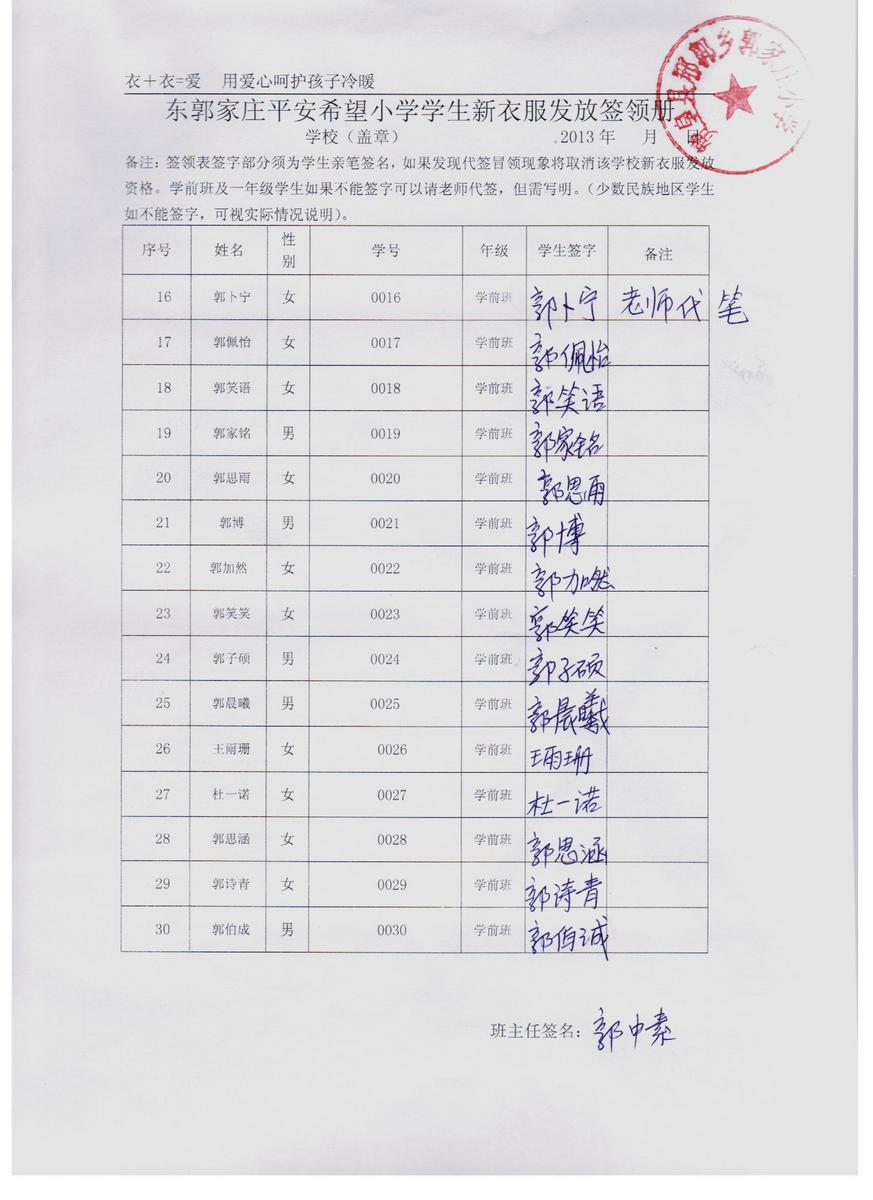 衣＋衣=爱 用爱心呵护孩子冷暖
东郭家庄平安希望小学学生新衣服发放签领册
学校（盖章） 2013年 月 日
备注：签领表签字部分须为学生亲笔签名，如果发现代签冒领现象将取消该学校新衣服发放
资格。学前班及一年级学生如果不能签字可以请老师代签，但需写明。（少数民族地区学生
如不能签字，可视实际情况说明）。
序号 姓名 性别 学号 年级 学生签字 备注
16 郭卜宁 女 0016 学前班 郭卜宁 老师代笔
17 郭佩怡 女 0017 学前班 郭佩怡
18 郭笑语 女 0018 学前班 郭笑语
19 郭家铭 男 0019 学前班 郭家铭
20 郭思雨 女 0020 学前班 郭思雨
21 郭博 男 0021 学前班 郭博
22 郭加然 女 0022 学前班 郭加然
23 郭笑笑 女 0023 学前班 郭笑笑
24 郭子硕 男 0024 学前班 郭子硕
25 郭晨曦 男 0025 学前班 郭晨曦
26 王雨珊 女 0026 学前班 王雨珊
27 杜一诺 女 0027 学前班 杜一诺
28 郭思涵 女 0028 学前班 郭思涵
29 郭诗青 女 0029 学前班 郭诗青
30 郭伯成 男 0030 学前班 郭伯诚
班主任签名：郭中素